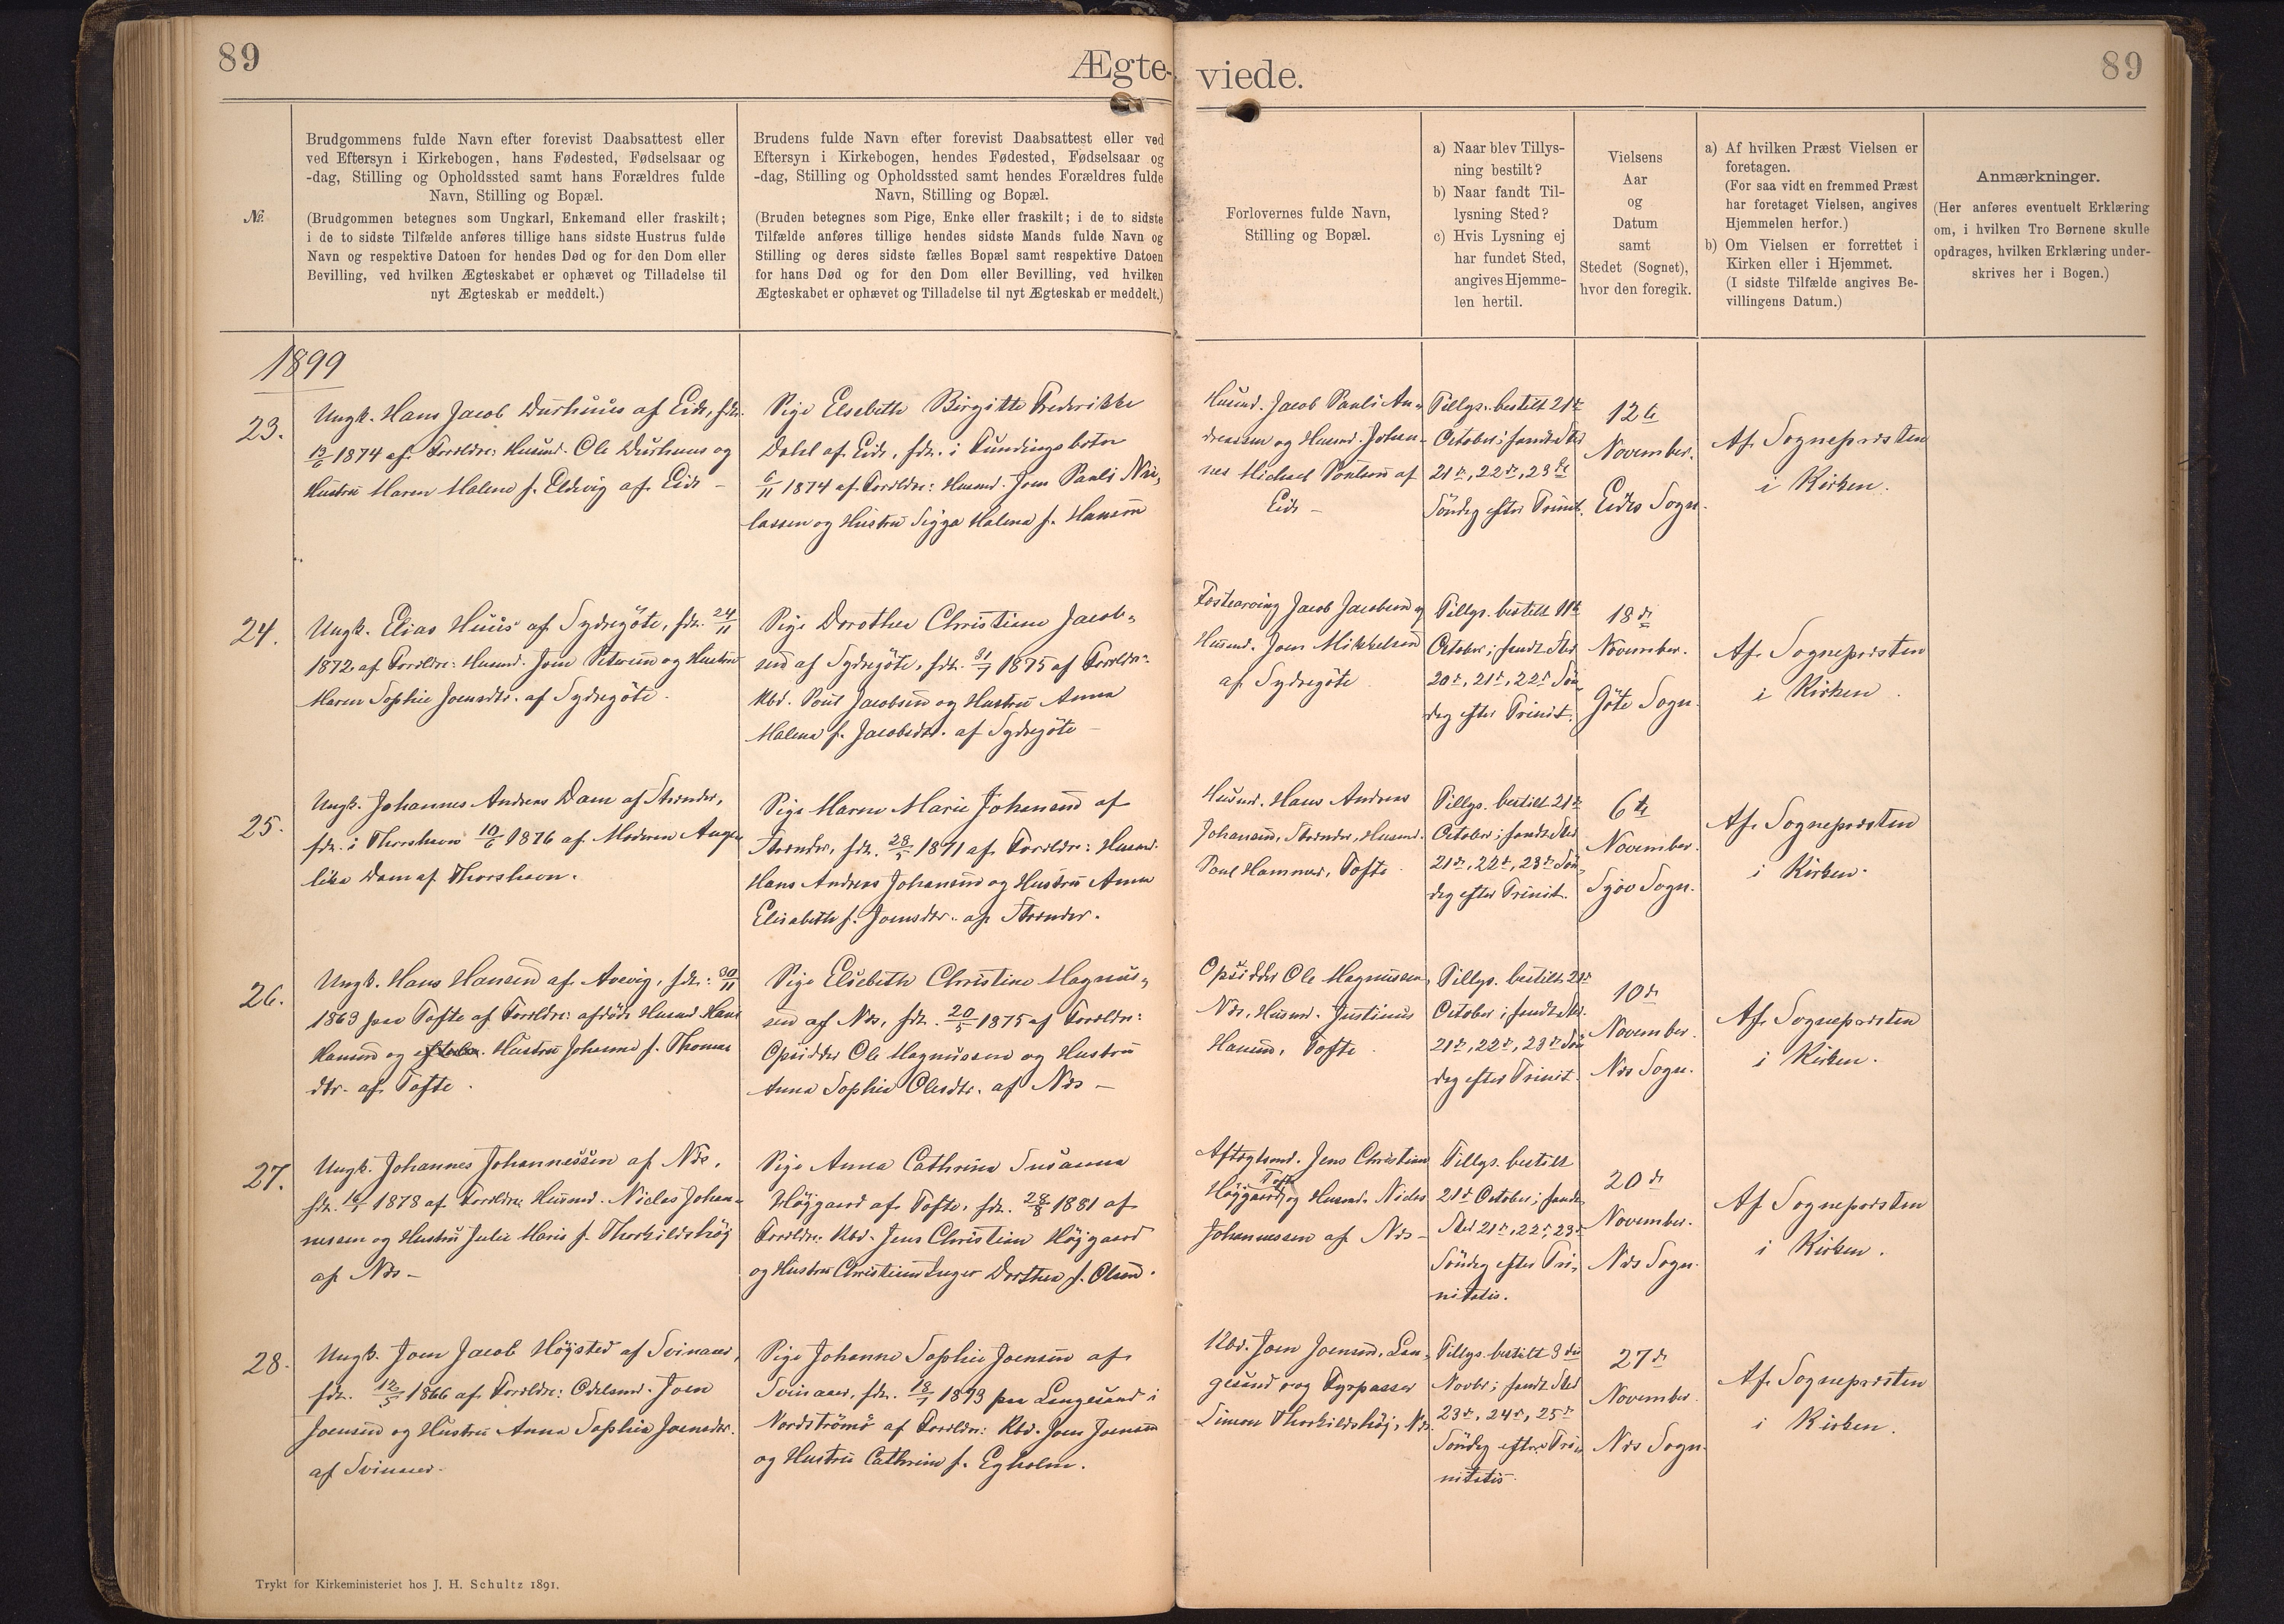 89
Ægte-
viede.
89
Nr.
Brudgommens fulde Navn efter forevist Daabsattest eller
ved Eftersyn i Kirkebogen, hans Fødested, Fødselsaar og
-dag, Stilling og Opholdssted samt hans Forældres fulde
Navn, Stilling og Bopæl.
(Brudgommen betegnes som Ungkarl, Enkemand eller fraskilt;
i de to sidste Tilfælde anføres tillige hans sidste Hustrus fulde
Navn og respektive Datoen for hendes Død og for den Dom eller
Bevilling, ved hvilken Ægteskabet er ophævet og Tilladelse til
nyt Ægteskab er meddelt.)
Brudens fulde Navn efter forevist Daabsattest eller ved
Eftersyn i Kirkebogen, hendes Fødested, Fødselsaar og
-dag, Stilling og Opholdssted samt hendes Forældres fulde
Navn, Stilling og Bopæl.
(Bruden betegnes som Pige, Enke eller fraskilt; i de to sidste
Tilfælde anføres tillige hendes sidste Mands fulde Navn og
Stilling og deres sidste fælles Bopæl samt respektive Datoen
for hans Død og for den Dom eller Bevilling, ved hvilken
Ægteskabet er ophævet og Tilladelse til nyt Ægteskab er meddelt.)
Forlovernes fulde Navn,
Stilling og Bopæl.
a) Naar blev Tillys-
ning bestilt?
b) Naar fandt Til-
lysning Sted?
c) Hvis Lysning ej
har fundet Sted,
angives Hjemme-
len hertil.
Vielsens
Aar
og
Datum
samt
Stedet (Sognet),
hvor den foregik.
a) Af hvilken Præst Vielsen er
foretagen.
(For saa vidt en fremmed Præst
har foretaget Vielsen, angives
Hjemmelen herfor.)
b) Om Vielsen er forrettet i
Kirken eller i Hjemmet.
(I sidste Tilfælde angives Be-
villingens Datum.)
Anmærkninger.
(Her anføres eventuelt Erklæring
om, i hvilken Tro Børnene skulle
opdrages, hvilken Erklæring under-
skrives her i Bogen.)
1899
23.
Ungk. Hans Jacob Durhuus af Eide, fdt.
1874 af Forældre: Husmd. Ole Durhuus og
Hustru Maren Malene f. Eldevig af Eide -
Pige Elsebeth Birgitte Frederikke
Dahl af Eide, fdt. i Fundingsbotn
6/11 1874 af Forældre: Husmd. Joen Pauli Nic-
lassen og Hustru Sigga Malena f. Hansen
Husmd. Jacob Pauli An-
dreasen og Husmd. Johan-
nes Michael Poulsen af
Eide -
Tillys. bestilt 21de
October; fandt Sted
21de, 22de, 23de
Söndag efter Trinit.
12te
November.
Eides Sogn.
Af Sognepræsten
i Kirken.
24.
Ungk. Elias Huus af Sydregöte, fdt. 24/11
1872 af Forældre: Husmd. Joen Petersen og Hustru
Maren Sophie Joensdtr. af Sydregöte.
Pige Dorothea Christiane Jacob-
sen af Sydregöte, fdt. 31/7 1875 af Forældre:
Kbd. Poul Jacobsen og Hustru Anna
Malena f. Jacobsdtr. af Sydregöte -
Jacob Jacobsen og
Husmd. Joen Mikkelsen
af Sydregöte
Tillys. bestilt 11te
October; fandt Sted
20de, 21de, 22de Sön-
dag efter Trinit.
18de
November.
Göte Sogn.
Af Sognepræsten
i Kirken.
25.
Ungk. Johannes Andreas Dam af Strænder,
fdt. i Thorshavn 10/6 1876 af Moderen Ange-
lika Dam af Thorshavn.
Pige Maren Marie Johansen af
Strænder, fdt. 28/5 1871 af Forældre: Husmd.
Hans Andreas Johansen og Hustru Anna
Elisabeth f. Joensdtr. af Strænder.
Husmd. Hans Andreas
Johansen, Strænder, Husmd.
Poul Hammer, Tofte.
Tillys. bestilt 21de
October; fandt Sted
21de, 22de, 23de Sön-
dag efter Trinit.
6te
November.
Sjov Sogn.
Af Sognepræsten
i Kirken.
26.
Ungk. Hans Hansen af Avevig, fdt. 30/11
1863 paa Tofte af Forældre: afdöde Husmd. Hans
Hansen og Hustru Johanne f. Thomas
dtr. af Tofte.
Pige Elsebeth Christine Magnus-
sen af Næs, fdt. 20/5 1875 af Forældre:
Opsidder Ole Magnussen og Hustru
Anna Sophie Olesdtr. af Næs -
Opsidder Ole Magnussen,
Næs, Husmd. Justinus
Hansen, Tofte.
Tillys. bestilt 21de
October; fandt Sted
21de, 22de, 23de Sön-
dag efter Trinit.
10de
November.
Næs Sogn.
Af Sognepræsten
i Kirken.
27.
Ungk. Johannes Johannessen af Næs,
fdt. 1878 af Forældre: Husmd. Niclas Johan-
nessen og Hustru Julie Marie f. Thorkildshöj
af Næs -
Pige Anna Cathrina Susanna
Höjgaard af Tofte, fdt. 28/8 1881 af
Forældre: Kbd. Jens Christian Höjgaard
og Hustru Christiane Inger Dorthea f. Olsen.
Aftægtsmd. Jens Christian
Tofte
Höjgaard, og Husmd. Niclas
Johannessen af Næs -
Tillys. bestilt
21de October; fandt
Sted 21de, 22de, 23de
Söndag efter Tri-
nitatis.
20de
November.
Næs Sogn.
Af Sognepræsten
i Kirken.
28.
Ungk. Joen Jacob Högsted af Svinaaer,
fdt. 12/5 1866 af Forældre: Odelsmd. Joen
Joensen og Hustru Anna Sophie Joensdtr.
af Svinaaer.
Pige Johanne Sophie Joensen af
Svinaaer, fdt. 18/1 1873 paa Langesand i
Nordströmö af Forældre: Kbd. Joen Joensen
og Hustru Cathrine f. Egholm.
Kbd. Joen Joensen, Lan-
gesand og Fyrpasser
Simon Thorkildshöj, Næs.
Tillys. bestilt 3die
Novbr; fandt Sted
23de, 24de, 25de
Söndag efter Tri-
nitatis.
27de
November.
Næs Sogn.
Af Sognepræsten
i Kirken.
Trykt for Kirkeministeriet hos J. H. Schultz 1891.